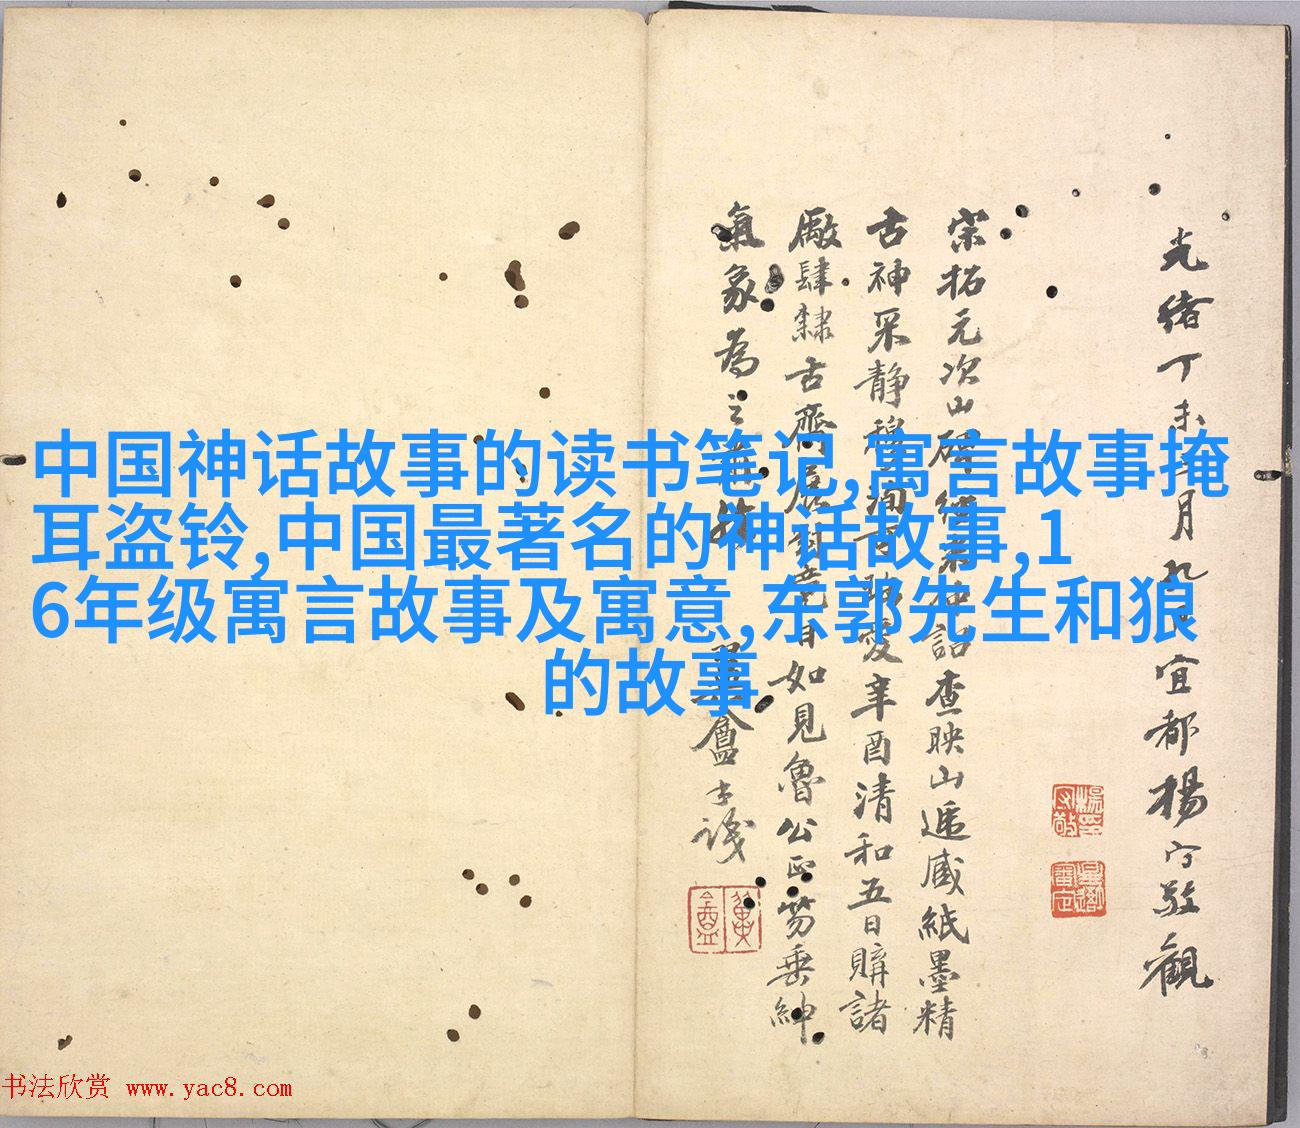 中国神话故事的读书笔记,寓言故事掩
耳盗铃,中国最著名的神话故事,1
6年级寓言故事及寓意,东郭先生和狼
的故事
光绪丁未 月九日宜都楊守敬觀
宋拓元次山碑 詔查映山遞咸紙墨精
古神采静穆 愛辛酉清和五日購諸
廠肆隸古齋 目如見魯公正笏垂紳
氣象為之 盦士識
書法欣赏 www.yac8.com